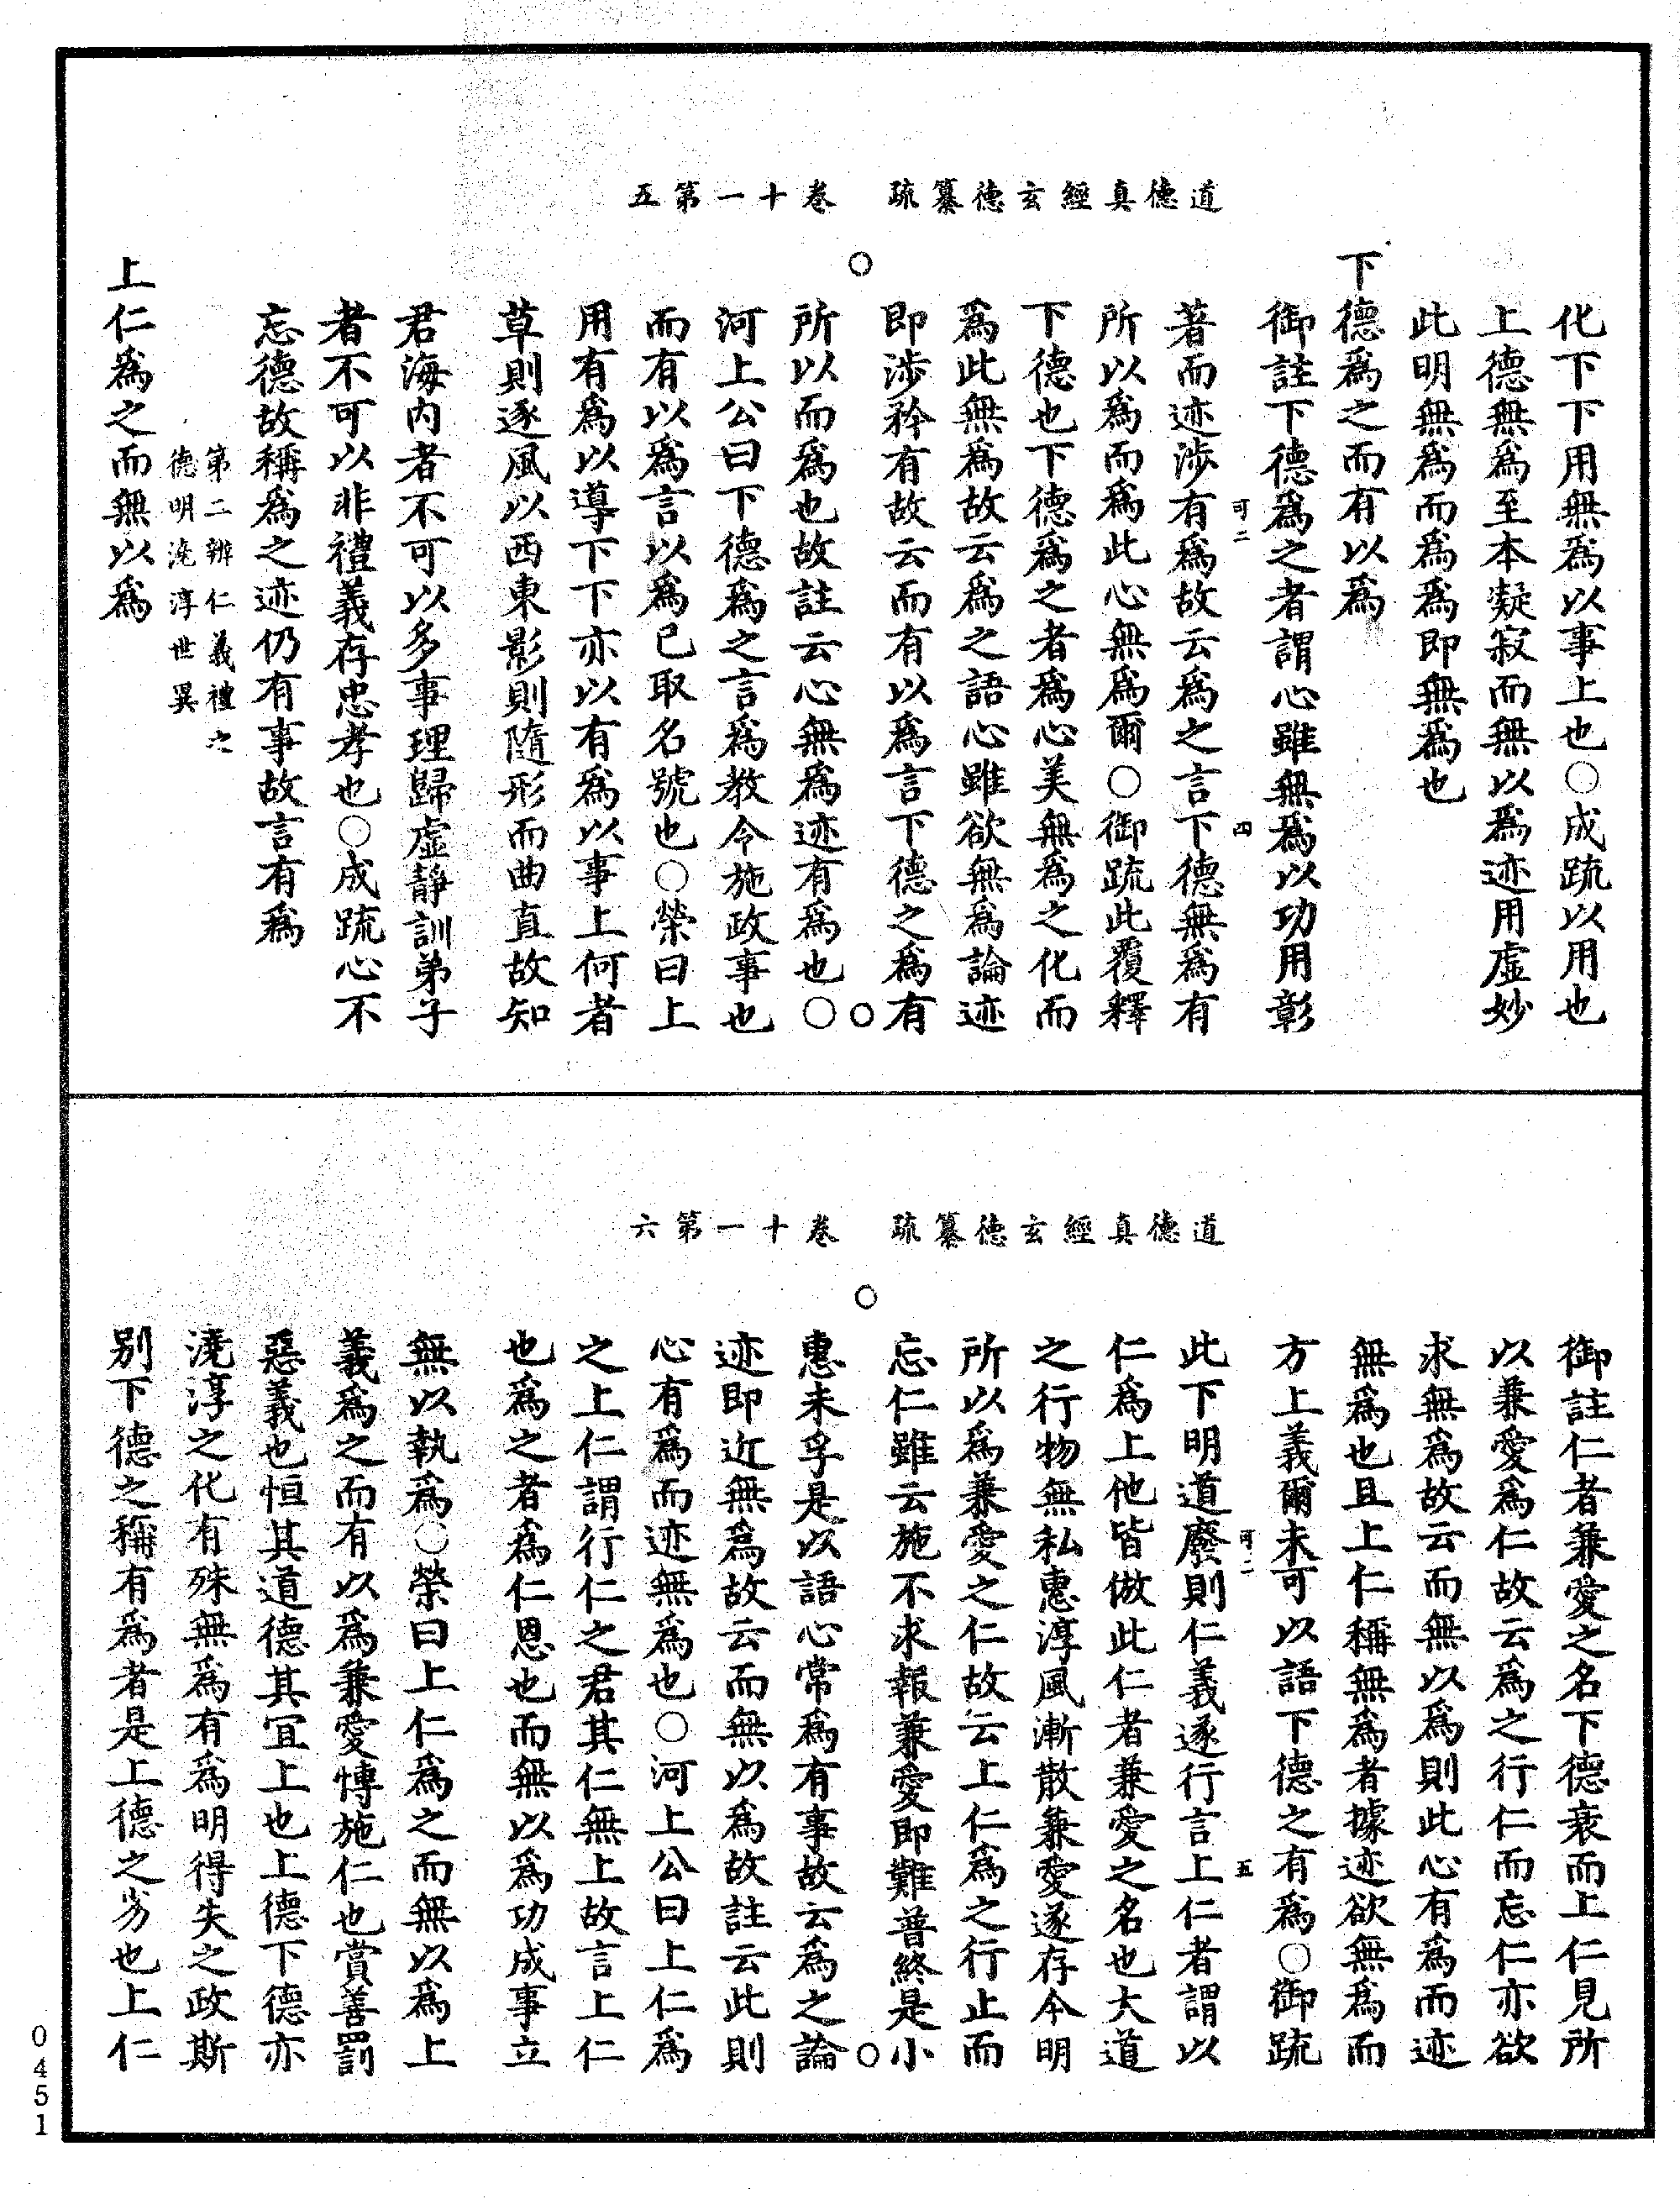 道德真經玄德纂疏　卷十一第五
化下下用無爲以事上也○成疏以用也
上德無爲至本凝寂而無以爲迹用虛妙
此明無爲而爲爲即無爲也
下德爲之而有以爲
御註下德爲之者謂心雖無爲以功用彰
可二　四
著而迹涉有爲故云爲之言下德無爲有
所以爲而爲此心無爲爾○御疏此覆釋
下德也下德爲之者爲心美無爲之化而
爲此無爲故云爲之語心雖欲無爲論迹
即涉矜有故云而有以爲言下德之爲有
所以而爲也故註云心無爲迹有爲也○
河上公曰下德爲之言爲教令施政事也
而有以爲言以爲己取名號也○榮曰上
用有爲以導下下亦以有爲以事上何者
草則逐風以西東影則隨形而曲直故知
君海內者不可以多事理歸虛靜訓弟子
者不可以非禮義存忠孝也○成疏心不
忘德故稱爲之迹仍有事故言有爲
第二辨仁義禮之
德明澆淳世異
上仁爲之而無以爲
道德真經玄德纂疏　卷十一第六
御註仁者兼愛之名下德衰而上仁見所
以兼愛爲仁故云爲之行仁而忘仁亦欲
求無爲故云而無以爲則此心有爲而迹
無爲也且上仁稱無爲者據迹欲無爲而
方上義爾未可以語下德之有爲○御疏
可二　五
此下明道廢則仁義遂行言上仁者謂以
仁爲上他皆倣此仁者兼愛之名也大道
之行物無私惠淳風漸散兼愛遂存今明
所以爲兼愛之仁故云上仁爲之行止而
忘仁雖云施不求報兼愛即難普終是小
惠未孚是以語心常爲有事故云爲之論
迹即近無爲故云而無以爲故註云此則
心有爲而迹無爲也○河上公曰上仁爲
之上仁謂行仁之君其仁無上故言上仁
也爲之者爲仁恩也而無以爲功成事立
無以執爲○榮曰上仁爲之而無以爲上
義爲之而有以爲兼愛博施仁也賞善罰
惡義也恒其道德其宜上也上德下德亦
澆淳之化有殊無爲有爲明得失之政斯
別下德之稱有爲者是上德之劣也上仁
0451